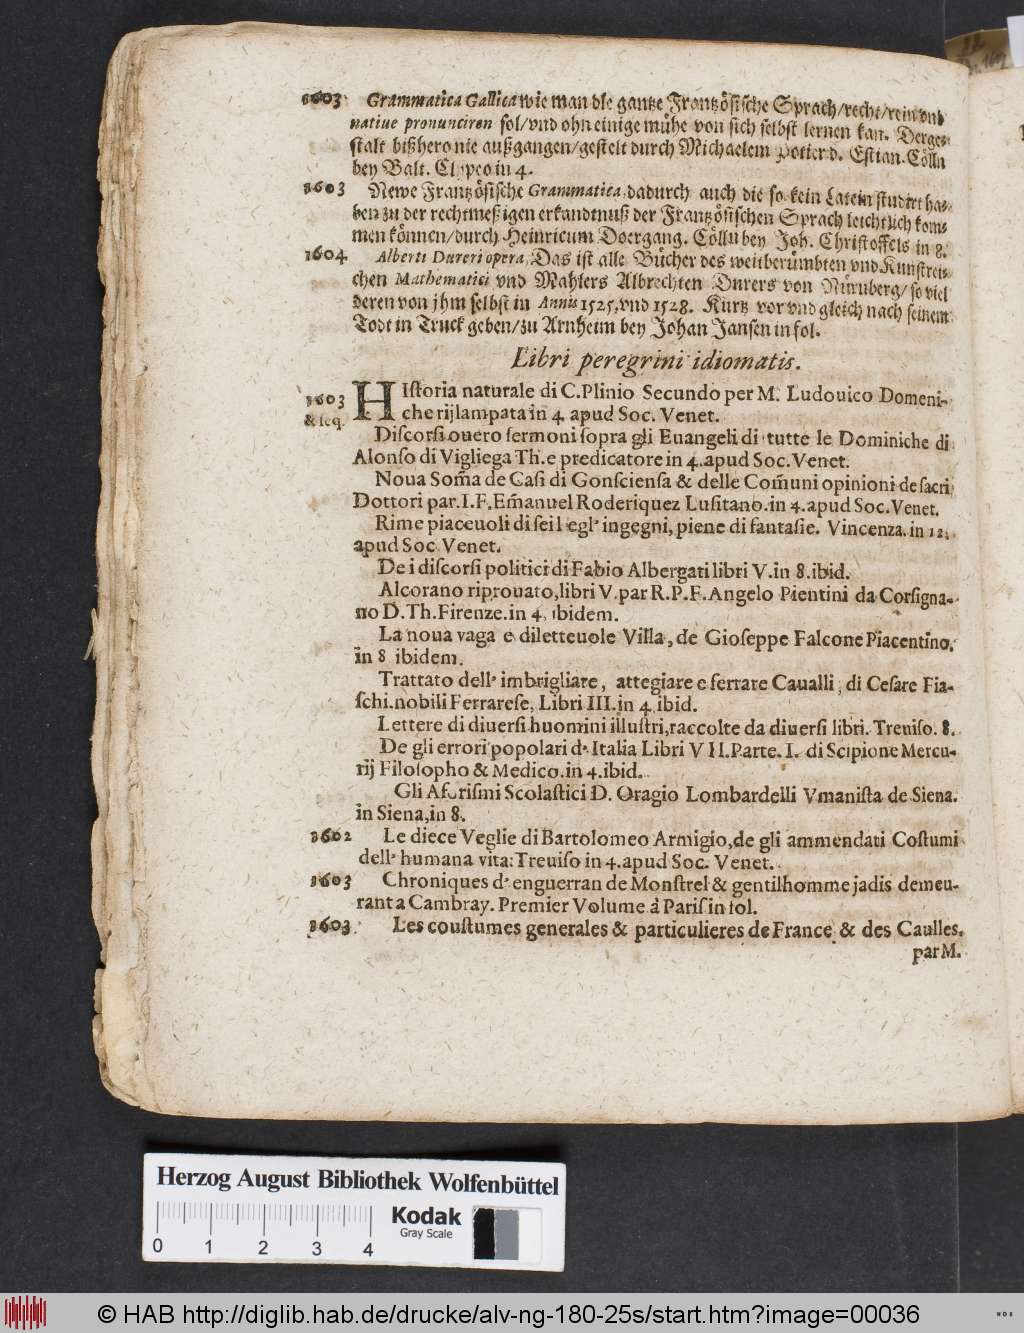 1603 Grammatica Gallica wie man die gantze Frantzösische Sprach/recht/rein vnd
natiue pronunciren sol/vnd ohn einige mühe von sich selbst lernen kan. Derges-
stalt bißhero nie außgangen/gestelt durch Michaelem Potier d. Estian. Cölln
bey Balt. Clypeo in 4.
1603 Newe Frantzösische Grammatica, dadurch auch die so kein Latein studirt ha-
ben zu der rechtmeßigen erkandtnuß der Frantzösischen Sprach leichtlich kom-
men können/durch Heinricum Doergang. Cölln bey Joh. Christoffels in 8.
1604 Alberti Dureri opera, Das ist alle Bücher des weitberümbten vnd Kunstrei-
chen Mathematici vnd Mahlers Albrechten Durers von Nürnberg/ so viel
deren von jhm selbst in Annis 1525, vnd 1528. Kurtz vor vnd gleich nach seinem
Todt in Truck geben/zu Arnheim bey Johan Jansen in fol.
Libri peregrini idiomatis.
1603 HIstoria naturale di C. Plinio Secundo per M. Ludouico Domeni-
& seq. che rijlampata in 4. apud Soc. Venet.
Discorsi ouero sermoni sopra gli Euangeli di tutte le Dominiche di
Alonso di Vigliega Th. e predicatore in 4. apud Soc. Venet.
Noua Som̃a de Casi di Gonsciensa & delle Com̃uni opinioni de sacri
Dottori par. I. F. Em̃anuel Roderiquez Lusitano. in 4. apud Soc. Venet.
Rime piaceuoli di sei begl' ingegni, piene di fantasie. Vincenza. in 12.
apud Soc Venet.
De i discorsi politici di Fabio Albergati libri V. in 8. ibid.
Alcorano riprouato, libri V. par R. P. F. Angelo Pientini da Corsigna-
no D. Th. Firenze. in 4. ibidem.
La noua vaga e diletteuole Villa, de Gioseppe Falcone Piacentino,
in 8 ibidem.
Trattato dell' imbrigliare, attegiare e ferrare Caualli, di Cesare Fia-
schi. nobili Ferrarese, Libri III. in 4. ibid.
Lettere di diuersi huomini illustri, raccolte da diuersi libri. Treuiso. 8.
De gli errori popolari d' Italia Libri VII. Parte. I. di Scipione Mercu-
rij Filosopho & Medico. in 4. ibid.
Gli Aforismi Scolastici D. Oragio Lombardelli Vmanista de Siena.
in Siena, in 8.
1602 Le diece Veglie di Bartolomeo Armigio, de gli ammendati Costumi
dell' humana vita: Treuiso in 4. apud Soc. Venet.
1603 Chroniques d' enguerran de Monstrel & gentilhomme jadis demeu-
rant a Cambray. Premier Volume à Paris in fol.
1603 Les coustumes generales & particulieres de France & des Caulles.
par M.
Herzog August Bibliothek Wolfenbüttel
0 1 2 3 4
Kodak
Gray Scale
© HAB http://diglib.hab.de/drucke/alv-ng-180-25s/start.htm?image=00036